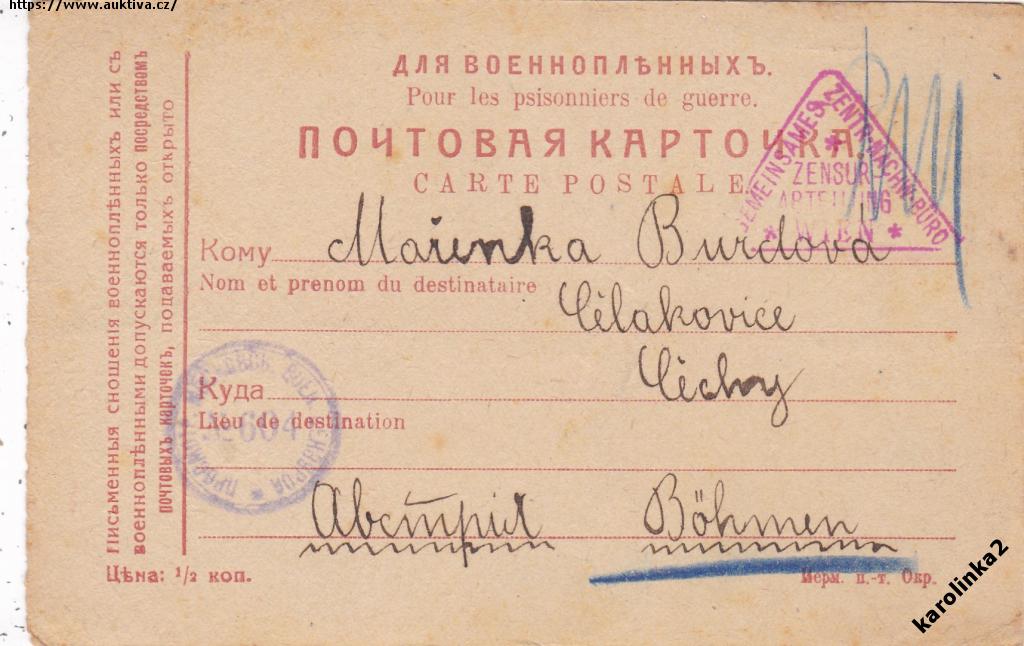 https://www.auktiva.cz/
ДЛЯ ВОЕННОПЛѢННЫХЪ.
Pour les psisonniers de guerre.
ПОЧТОВАЯ КАРТОЧКА.
CARTE POSTALE
GEMEINSAMES ZENTR. NACHW. BÜRO
ZENSUR-
ABTEILUNG
* WIEN *
Кому Mařenka Burdova
Nom et prenom du destinataire
Čelakovice
Куда Čechy
Lieu de destination
№ 604
Австрия Böhmen
Письменныя сношенія военноплѣнныхъ или съ
военноплѣнными допускаются только посредствомъ
почтовыхъ карточекъ, подаваемыхъ открыто
Цѣна: 1/2 коп.
п.-т. Окр.
karolinka2